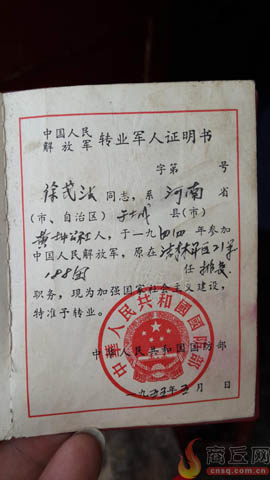 中国人民
解放军 转业军人证明书
字第 号
徐 同志,系 河南 省
(市、自治区) 县(市)
人,于一九四四年参加
中国人民解放军,原在 军区21军
188团 任
职务,现为加强国家社会主义建设,
特准予转业。
中华人民共和国国防部
中華人民共和國國防部
一九五五年 月 日
商丘网
cnsq.com.cn